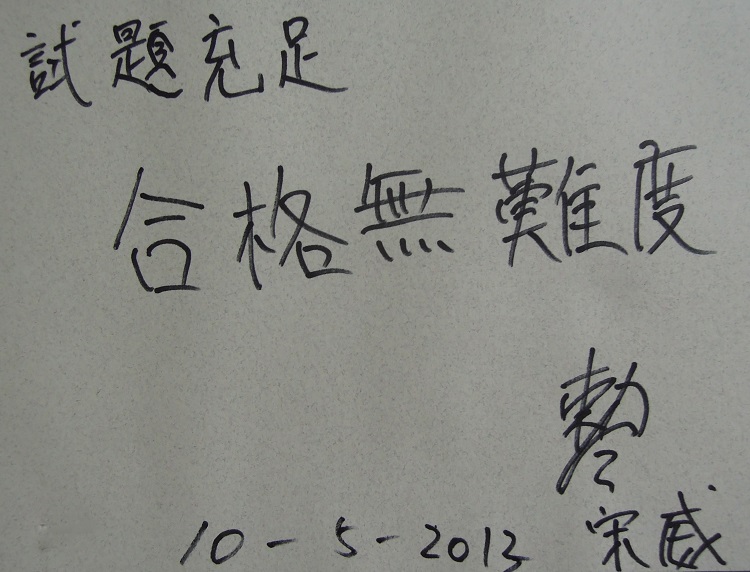 試題充足
合格無難度
10-5-2013 宋威